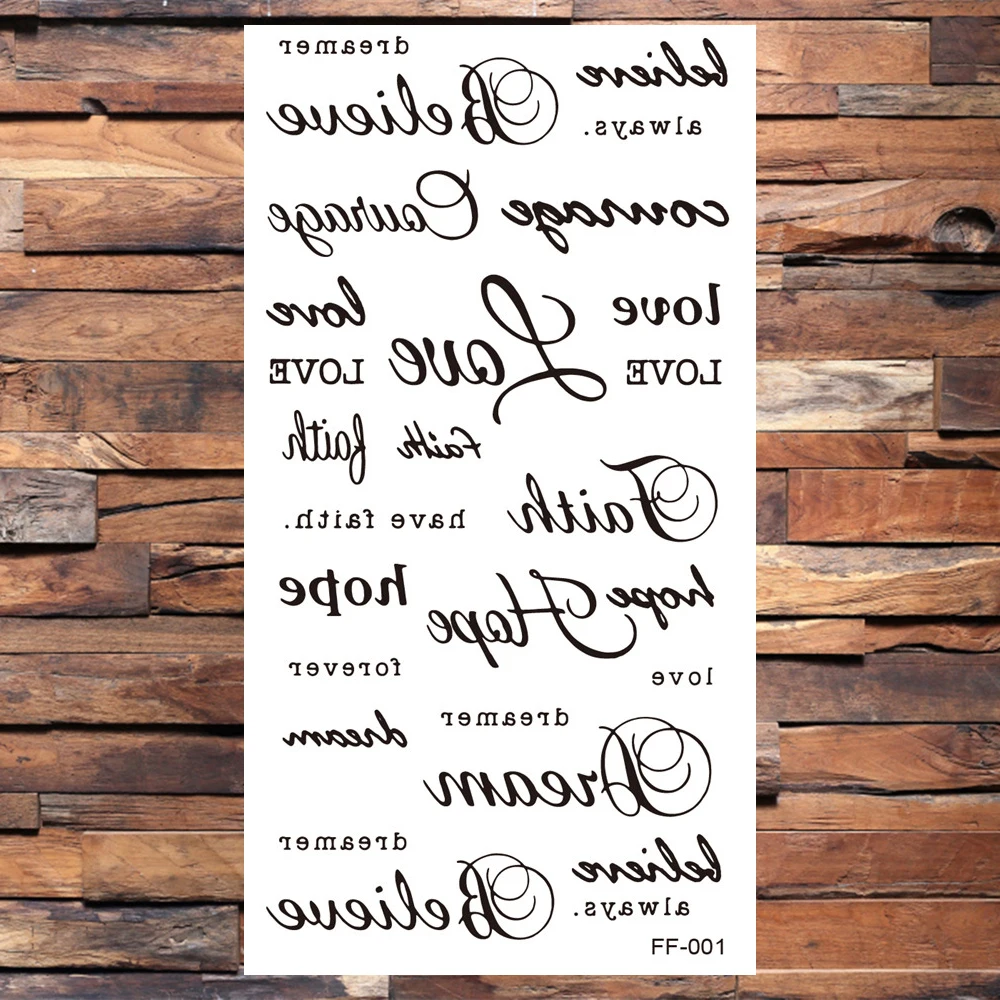 dreamer
Believe
believe
always.
Courage
courage
love
Love
love
LOVE
LOVE
faith
faith
Faith
have faith.
hope
Hope
hope
forever
love
dreamer
dream
Dream
dreamer
Believe
believe
always.
FF-001